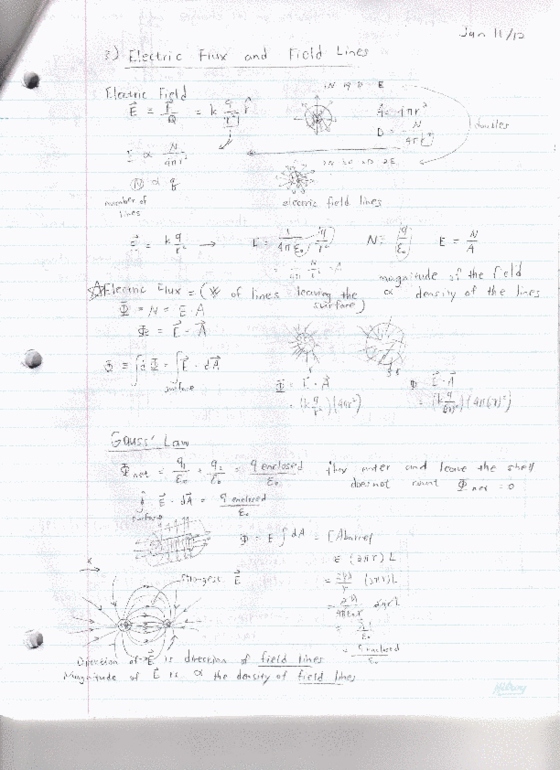 Jan 11/12
3) Electric Flux and Field Lines
Electric Field
E⃗ = F⃗/Q = k q/r² r̂
A = 4πr²
D = N/4πr²
doubles
E ∝ N/4πr²
N ∝ q
number of lines
electric field lines
E⃗ = k q/r² → E = 1/4πε₀ q/r² N = q/ε₀ E = N/A
magnitude of the field
∝ density of the lines
Electric Flux = (# of lines leaving the surface)
Φ = N = E · A
Φ = E⃗ · A⃗
Φ = ∫dΦ = ∫ E⃗ · dA⃗
surface
Φ = E⃗ · A⃗
= (k q/r²)(4πr²)
Φ = E⃗ · A⃗
Gauss' Law
Φnet = q₁/ε₀ + q₂/ε₀ = q enclosed/ε₀
they enter and leave the shell
does not count Φnet = 0
∮ E⃗ · dA⃗ = q enclosed/ε₀
surface
Φ = E ∫ dA = E Abarrel
E (2πr) L
= 2kλ/r (2πr) L
= q enclosed/ε₀
strongest E⃗
Direction of E⃗ is direction of field lines
Magnitude of E⃗ is ∝ the density of field lines
Hilroy